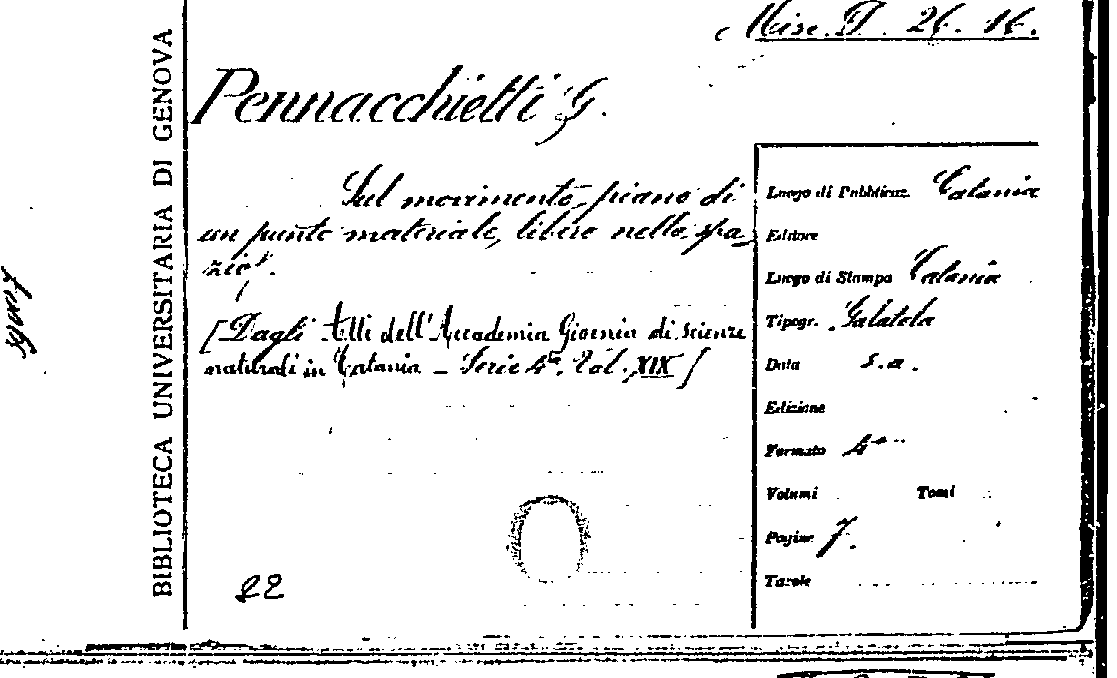 Misc. T. 26. 16.
BIBLIOTECA UNIVERSITARIA DI GENOVA
Pennacchietti G.
Sul movimento piano di
un punto materiale, libero nello spa
zio.
[Dagli Atti dell'Accademia Gioenia di scienze
naturali in Catania – Serie 4ª. Vol. XIX]
22
Luogo di Pubblicaz. Catania
Editore
Luogo di Stampa Catania
Tipogr. Galatola
Data s.a.
Edizione
Formato 4°
Volumi Tomi
Pagine 7.
Tavole